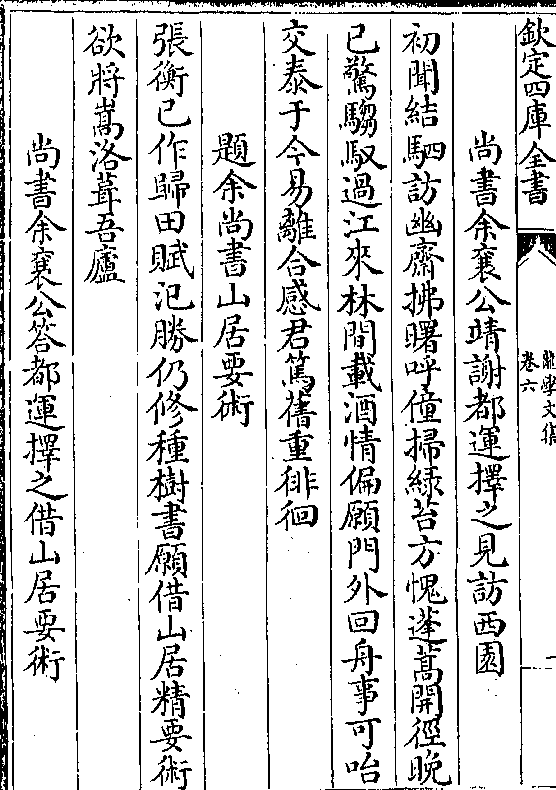 欽定四庫全書
龍學文集
卷六
尚書余襄公靖謝都運擇之見訪西園
初聞結駟訪幽齋拂曙呼僮掃綠苔方愧蓬蒿開徑晚
已驚騶馭過江來林間載酒情偏願門外回舟事可咍
交泰于今易離合感君篤舊重徘徊
題余尚書山居要術
張衡已作歸田賦氾勝仍修種樹書願借山居精要術
欲將嵩洛葺吾廬
尚書余襄公答都運擇之借山居要術